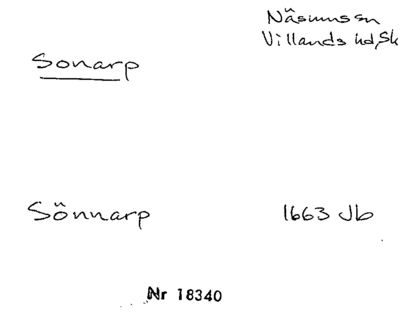 Näsums sn
Villands hd, Sk
Sonarp
Sönnarp
1663 Jb
Nr 18340